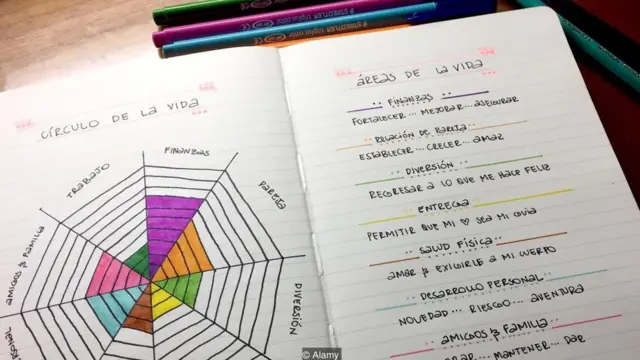 STAEDTLER triplus color
STAEDTLER triplus color
CÍRCULO DE LA VIDA
TRABAJO
FINANZAS
PAREJA
AMIGOS & FAMILIA
DIVERSIÓN
ÁREAS DE LA VIDA
FINANZAS
FORTALECER... MEJORAR... ASEGURAR
RELACIÓN DE PAREJA
ESTABLECER... CRECER... AMAR
DIVERSIÓN
REGRESAR A LO QUE ME HACE FELIZ
ENTREGA
PERMITIR QUE MI ♡ SEA MI GUÍA
SALUD FÍSICA
AMAR & EXIGIRLE A MI CUERPO
DESARROLLO PERSONAL
NOVEDAD... RIESGO... AVENTURA
AMIGOS & FAMILIA
MANTENER... DAR
© Alamy